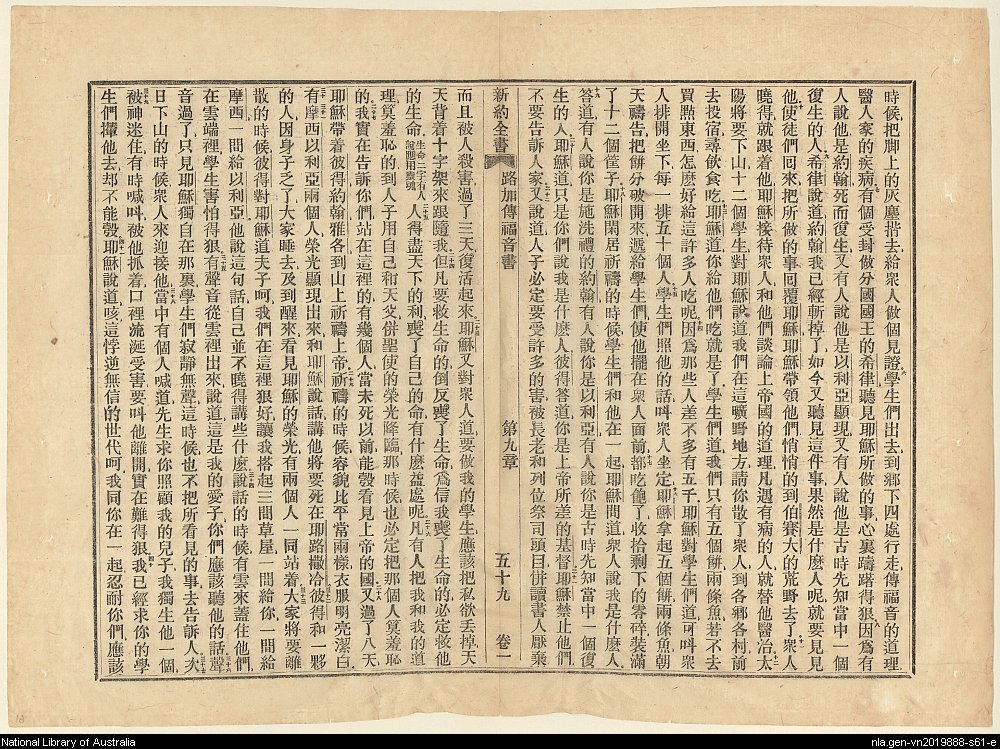 時候把脚上的灰塵揩去給衆人做個見證學生們出去到鄉下四處行走傳福音的道理
醫人家的疾病有個受封做分國國王的希律聽見耶穌所做的事心裏躊躇得狠因爲有
人說他是約翰死而復生又有人說他是以利亞顯現又有人說他是古時先知當中一個
復生的人希律說道約翰我已經斬掉了如今又聽見這件事果然是什麽人呢就要見見
他使徒們囘來把所做的事囘覆耶穌耶穌帶領他們悄悄的到伯賽大的荒野去了衆人
曉得就跟着他耶穌接待衆人和他們談論上帝國的道理凡遇有病的人就替他醫治太
陽將要下山十二個學生對耶穌說道我們在這曠野地方請你散了衆人到各鄉各村前
去投宿尋飲食吃耶穌道你給他們吃就是了學生們道我們只有五個餅兩條魚若不去
買點東西怎麽好給這許多人吃呢因爲那些人差不多有五千耶穌對學生們道可叫衆
人排開坐下每一排五十個人學生們照他的話叫衆人坐定耶穌拿起五個餅兩條魚朝
天禱告把餅分破開來遞給學生們使他擺在衆人面前都吃飽了收拾剩下的零碎裝滿
了十二個筐子耶穌閑居祈禱的時候學生們和他在一起耶穌問道衆人說我是什麽人
答道有人說你是施洗禮的約翰有人說你是以利亞有人說你是古時先知當中一個復
生的人耶穌道只是你們說我是什麽人彼得答道你是上帝所差的基督耶穌禁止他們
不要告訴人家又說道人子必定要受許多的害被長老和列位祭司頭目併讀書人厭棄
新約全書 路加傳福音書 第九章 五十九 卷一
而且被人殺害過了三天復活起來耶穌又對衆人道要做我的學生應該把私欲丢掉天
天背着十字架來跟隨我但凡要救生命的倒反喪了生命爲信我喪了生命的必定救他
的生命生命二字有人說應用靈魂人得盡天下的利喪了自己的命有什麽益處呢凡有人把我和我的道
理算羞恥的到人子用自己和天父併聖使的榮光降臨那時候也必定把那個人算羞恥
的我實在告訴你們站在這裡的有幾個人當未死以前能彀看見上帝的國又過了八天
耶穌帶着彼得約翰雅各到山上祈禱上帝祈禱的時候容貌比平常兩樣衣服明亮潔白
有摩西以利亞兩個人榮光顯現出來和耶穌說話講他將要死在耶路撒冷彼得和一夥
的人因身子乏了大家睡去及到醒來看見耶穌的榮光有兩個人一同站着大家將要離
散的時候彼得對耶穌道夫子呵我們在這裡狠好讓我搭起三間草屋一間給你一間給
摩西一間給以利亞他說這句話自己並不曉得講些什麽說話的時候有雲來蓋住他們
在雲端裡學生害怕得狠有聲音從雲裡出來說道這是我的愛子你們應該聽他的話聲
音過了只見耶穌獨自在那裏學生們寂靜無聲這時候也不把所看見的事去告訴人次
日下山的時候衆人來迎接他當中有個人喊道先生求你照顧我的兒子我獨生他一個
被神迷住有時喊叫被他抓着口裡流涎受害要叫他離開實在難得狠我已經求你的學
生們攆他去却不能彀耶穌說道咳這悖逆無信的世代呵我同你在一起忍耐你們應該
National Library of Australia
nla.gen-vn2019888-s61-e